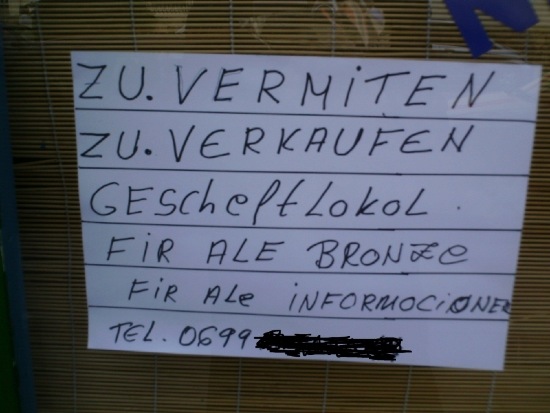 ZU. VERMITEN
ZU. VERKAUFEN
GEScheftLokoL.
FIR ALE BRONZe
FIR ALe INFORMOCIONEN
TEL. 0699